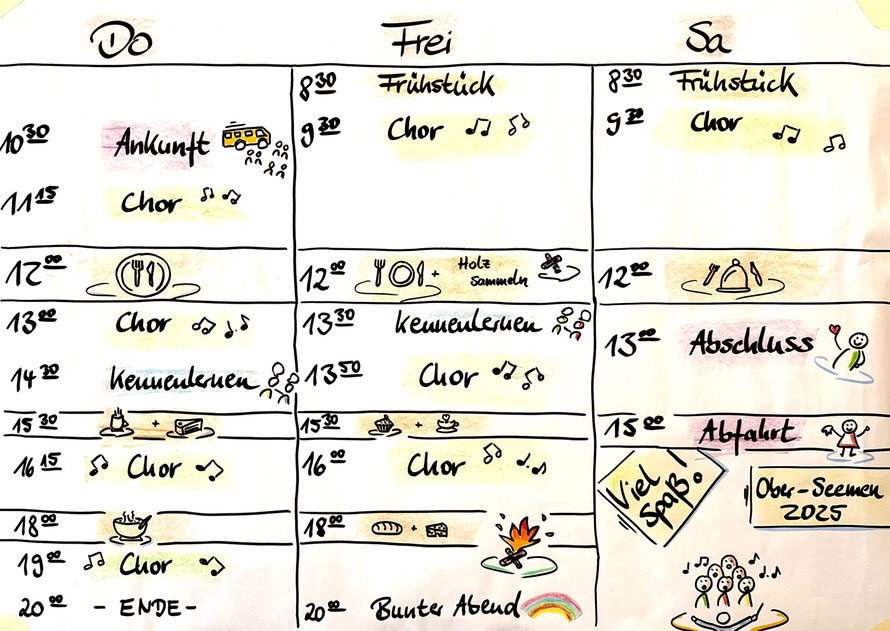 Do
10³⁰ Ankunft
11¹⁵ Chor
12⁰⁰
13⁰⁰ Chor
14³⁰ Kennenlernen
15³⁰ +
16¹⁵ Chor
18⁰⁰
19⁰⁰ Chor
20⁰⁰ - ENDE -
Frei
8³⁰ Frühstück
9³⁰ Chor
12⁰⁰ + Holz
sammeln
13³⁰ Kennenlernen
13⁵⁰ Chor
15³⁰ +
16⁰⁰ Chor
18⁰⁰ +
20⁰⁰ Bunter Abend
Sa
8³⁰ Frühstück
9³⁰ Chor
12⁰⁰
13⁰⁰ Abschluss
15⁰⁰ Abfahrt
Viel
Spaß!
Ober-Seemen
2025